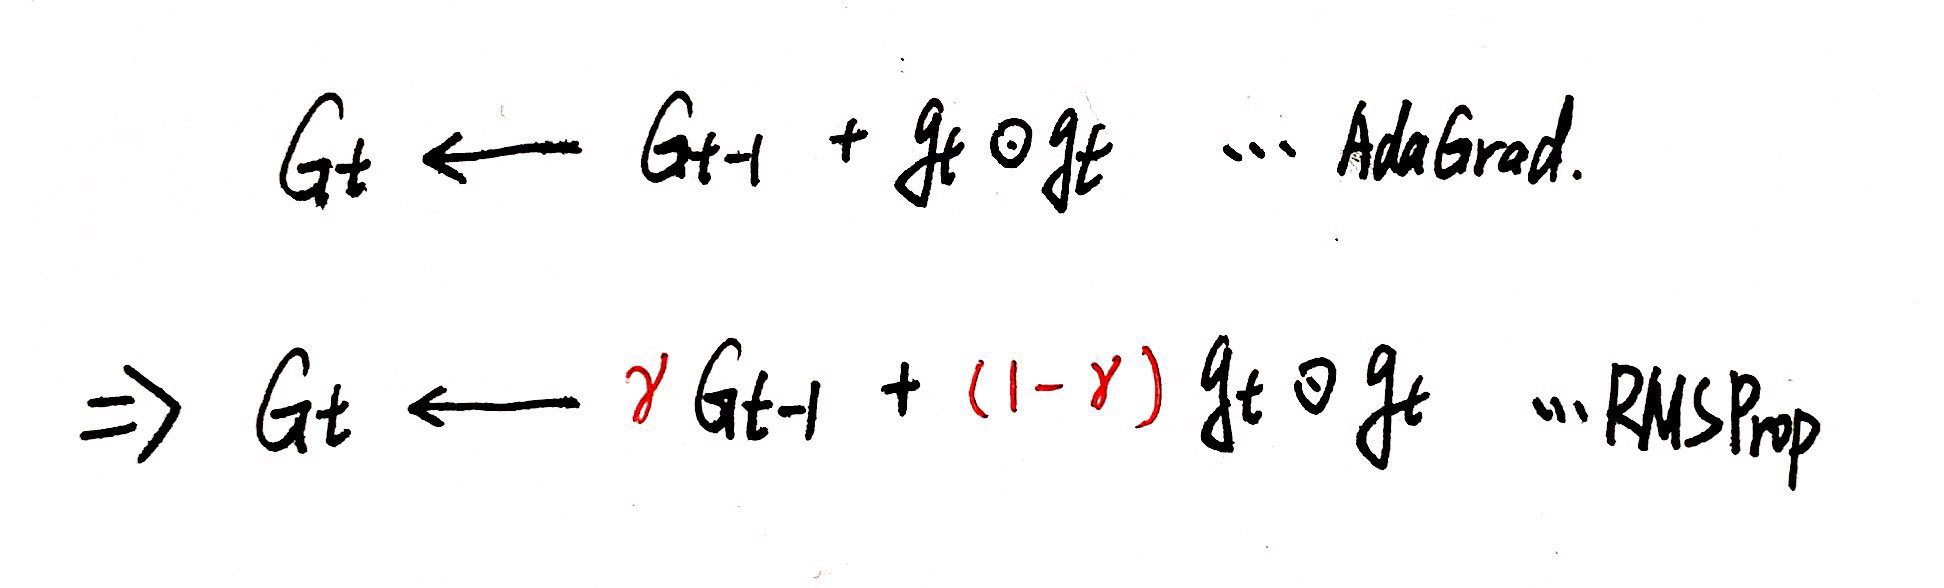 Gt ← Gt-1 + gt ⊙ gt ... AdaGrad.
⇒ Gt ← γ Gt-1 + (1-γ) gt ⊙ gt ... RMSProp